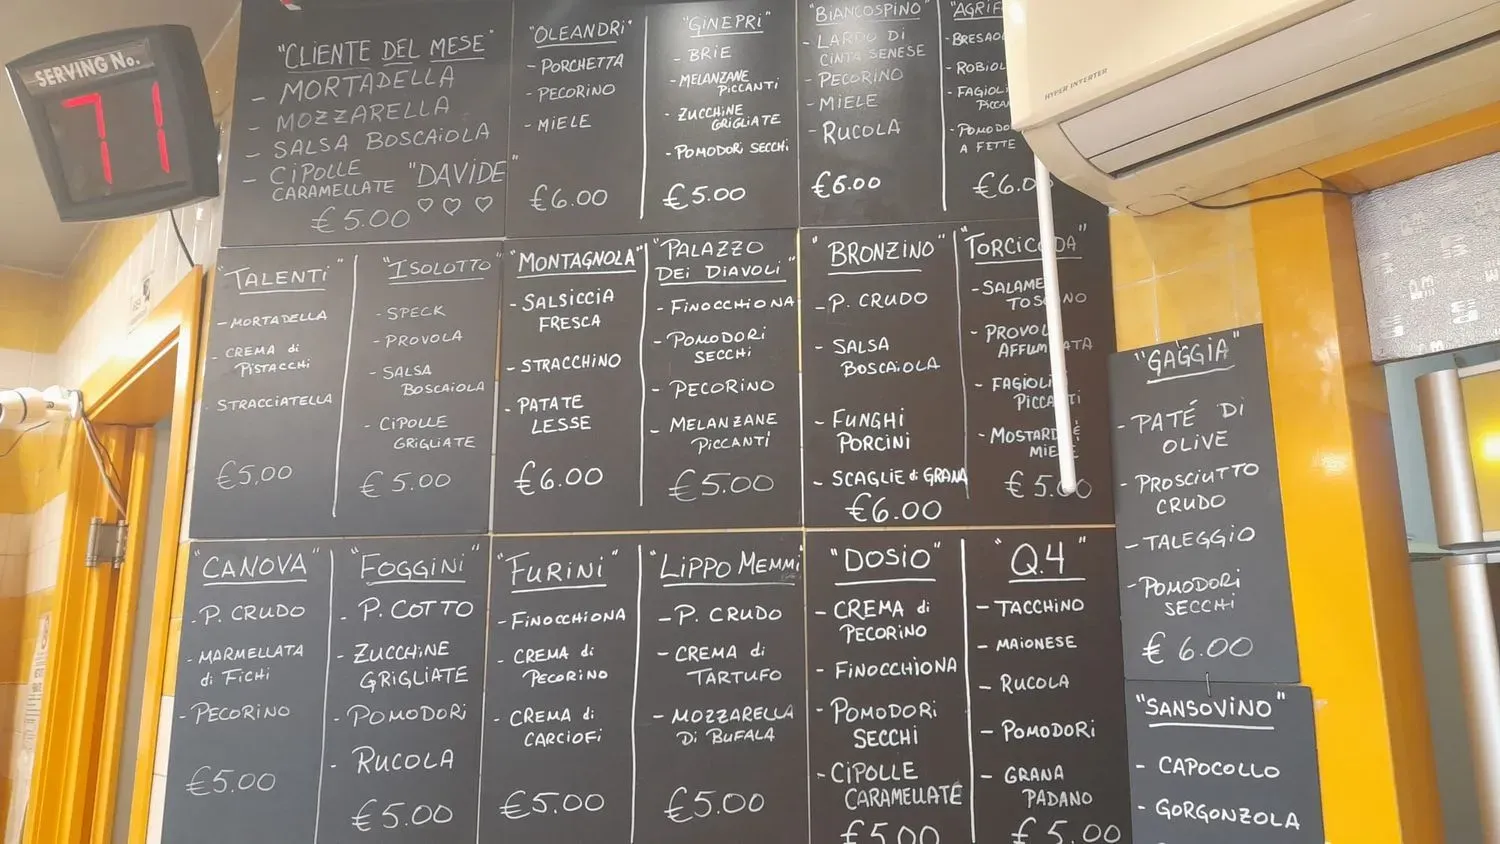 SERVING No.
71
"CLIENTE DEL MESE"
- MORTADELLA
- MOZZARELLA
- SALSA BOSCAIOLA
- CIPOLLE
CARAMELLATE "DAVIDE"
€5.00 ♡♡♡
"OLEANDRI"
- PORCHETTA
- PECORINO
- MIELE
€6.00
"GINEPRI"
- BRIE
- MELANZANE
PICCANTI
- ZUCCHINE
GRIGLIATE
- POMODORI SECCHI
€5.00
"BIANCOSPINO"
- LARDO DI
CINTA SENESE
- PECORINO
- MIELE
- RUCOLA
€6.00
"AGRIF
- BRESAO
- ROBIOL
- FAGIOLI
PICCAN
- POMODO
A FETTE
€6.0
HYPER INVERTER
"TALENTI"
- MORTADELLA
- CREMA di
PISTACCHI
- STRACCIATELLA
€5,00
"ISOLOTTO"
- SPECK
- PROVOLA
- SALSA
BOSCAIOLA
- CIPOLLE
GRIGLIATE
€5.00
"MONTAGNOLA"
- SALSICCIA
FRESCA
- STRACCHINO
- PATATE
LESSE
€6.00
"PALAZZO
DEI DIAVOLI"
- FINOCCHIONA
- POMODORI
SECCHI
- PECORINO
- MELANZANE
PICCANTI
€5.00
"BRONZINO"
- P. CRUDO
- SALSA
BOSCAIOLA
- FUNGHI
PORCINI
- SCAGLIE di GRANA
€6.00
"TORCICODA"
- SALAME
TOSCANO
- PROVOLA
AFFUMICATA
- FAGIOLI
PICCANTI
- MOSTARDA E
MIELE
€5.00
"GAGGIA"
- PATÉ DI
OLIVE
- PROSCIUTTO
CRUDO
- TALEGGIO
- POMODORI
SECCHI
€6.00
"CANOVA"
- P. CRUDO
- MARMELLATA
di FICHI
- PECORINO
€5.00
"FOGGINI"
- P. COTTO
- ZUCCHINE
GRIGLIATE
- POMODORI
- RUCOLA
€5.00
"FURINI"
- FINOCCHIONA
- CREMA di
PECORINO
- CREMA di
CARCIOFI
€5.00
"LIPPO MEMMI"
- P. CRUDO
- CREMA di
TARTUFO
- MOZZARELLA
DI BUFALA
€5.00
"DOSIO"
- CREMA di
PECORINO
- FINOCCHIONA
- POMODORI
SECCHI
- CIPOLLE
CARAMELLATE
€5.00
"Q.4"
- TACCHINO
- MAIONESE
- RUCOLA
- POMODORI
- GRANA
PADANO
€5.00
"SANSOVINO"
- CAPOCOLLO
- GORGONZOLA